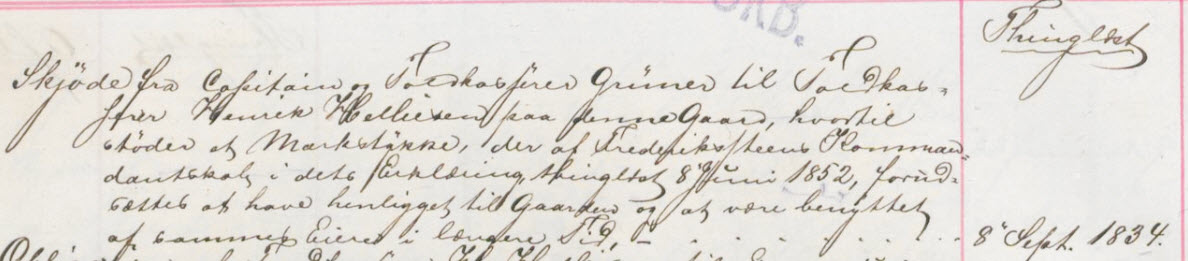 ØRD.
Thinglæst
Skjöde fra Capitain og Toldkasserer Grüner til Toldkas-
serer Henrik Helliesen paa denne Gaard, hvortil
stöder et Markstykke, der af Frederikssteens Komman-
dantskab i dets Erklæring, thinglæst 8 Juni 1852, forud-
sættes at have henligget til Gaarden og at være benyttet
af sammes Eiere i længere Tid, 8 Sept. 1834.